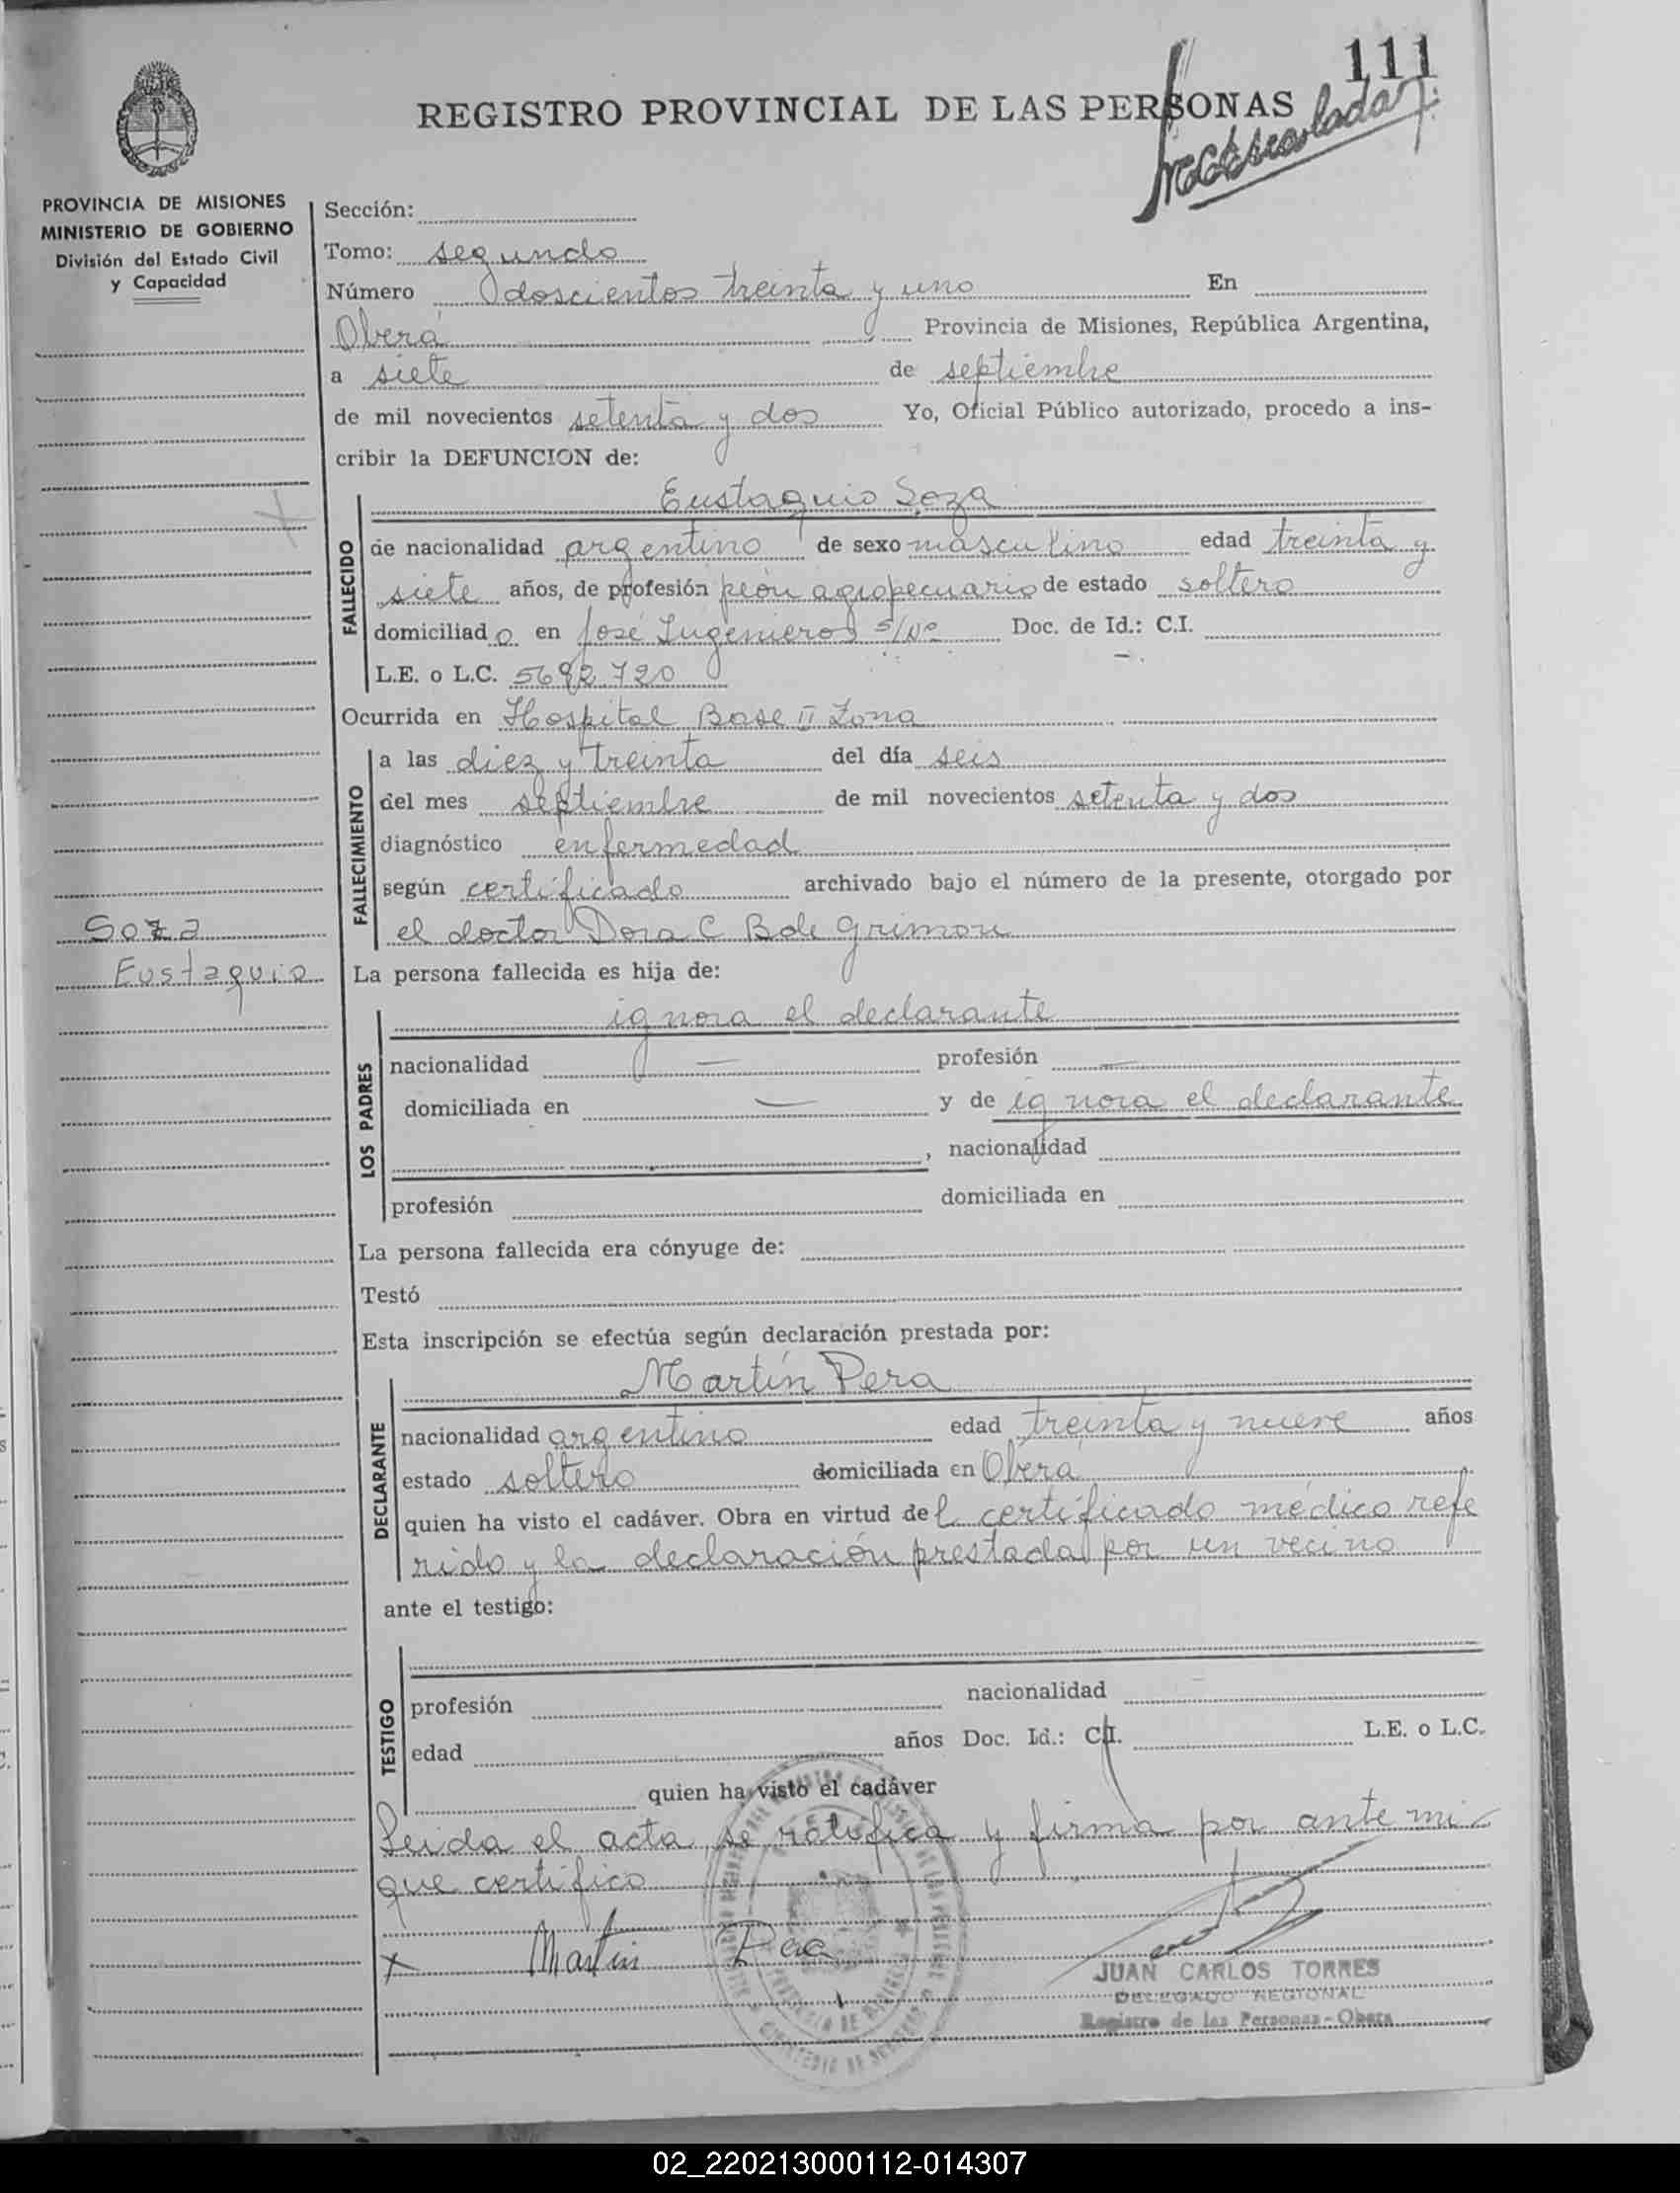 111
REGISTRO PROVINCIAL DE LAS PERSONAS
PROVINCIA DE MISIONES
MINISTERIO DE GOBIERNO
División del Estado Civil
y Capacidad
Sección:
Tomo: segundo
Número doscientos treinta y uno En
Oberá Provincia de Misiones, República Argentina,
a siete de septiembre
de mil novecientos setenta y dos Yo, Oficial Público autorizado, procedo a ins-
cribir la DEFUNCION de:
FALLECIDO
Eustaquio Soza
de nacionalidad argentino de sexo masculino edad treinta y
siete años, de profesión peón agropecuario de estado soltero
domiciliado en José Ingenieros S/Nº Doc. de Id.: C.I.
L.E. o L.C. 5692.720
Ocurrida en Hospital Base II Zona
FALLECIMIENTO
a las diez y treinta del día seis
del mes septiembre de mil novecientos setenta y dos
diagnóstico enfermedad
según certificado archivado bajo el número de la presente, otorgado por
el doctor Dora C B de Grimon
Soza
Eustaquio
La persona fallecida es hija de:
LOS PADRES
ignora el declarante
nacionalidad — profesión —
domiciliada en — y de ignora el declarante
, nacionalidad
profesión domiciliada en
La persona fallecida era cónyuge de:
Testó
Esta inscripción se efectúa según declaración prestada por:
DECLARANTE
Martín Pera
nacionalidad argentino edad treinta y nueve años
estado soltero domiciliada en Oberá
quien ha visto el cadáver. Obra en virtud del certificado médico refe
rido y la declaración prestada por un vecino
ante el testigo:
TESTIGO
profesión nacionalidad
edad años Doc. Id.: C.I. L.E. o L.C.
quien ha visto el cadáver
Leida el acta se ratifica y firma por ante mi
que certifico
x Martin Pera
JUAN CARLOS TORRES
DELEGADO REGIONAL
Registro de las Personas - Obera
02_220213000112-014307